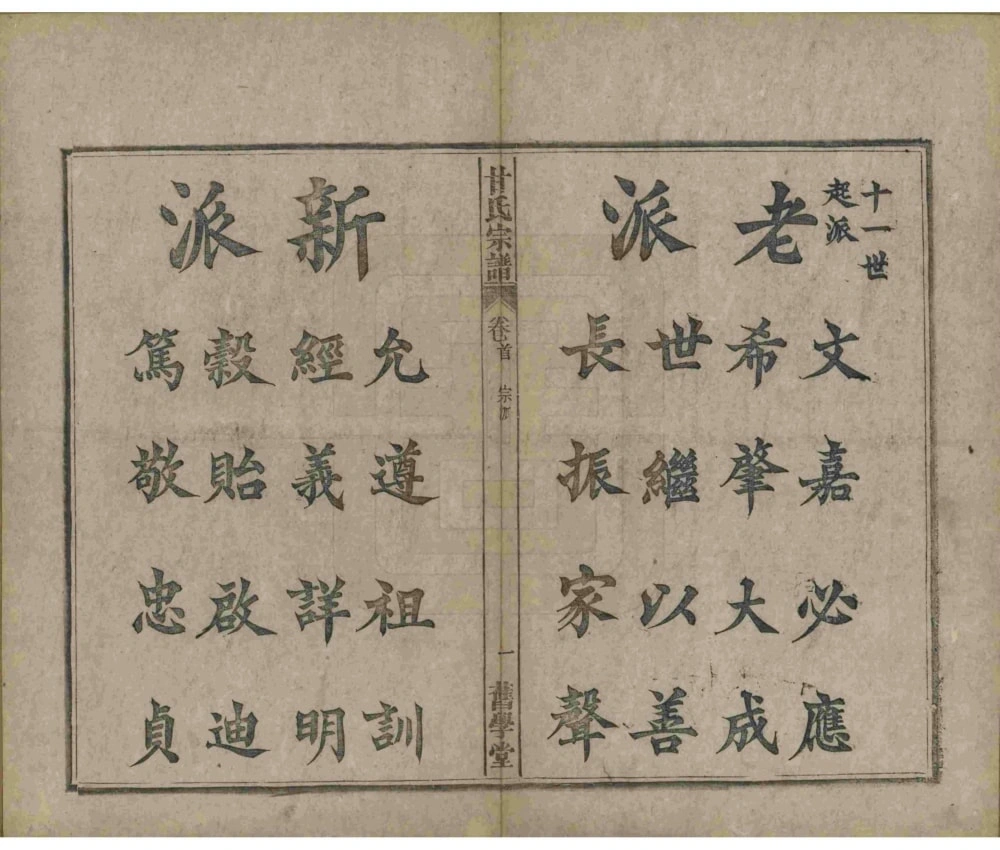 十一世
起派
老派
文嘉必應
希肇大成
世繼以善
長振家聲
甘氏宗譜
卷首
宗派
一
舊學堂
新派
允遵祖訓
經義詳明
穀貽啟迪
篤敬忠貞